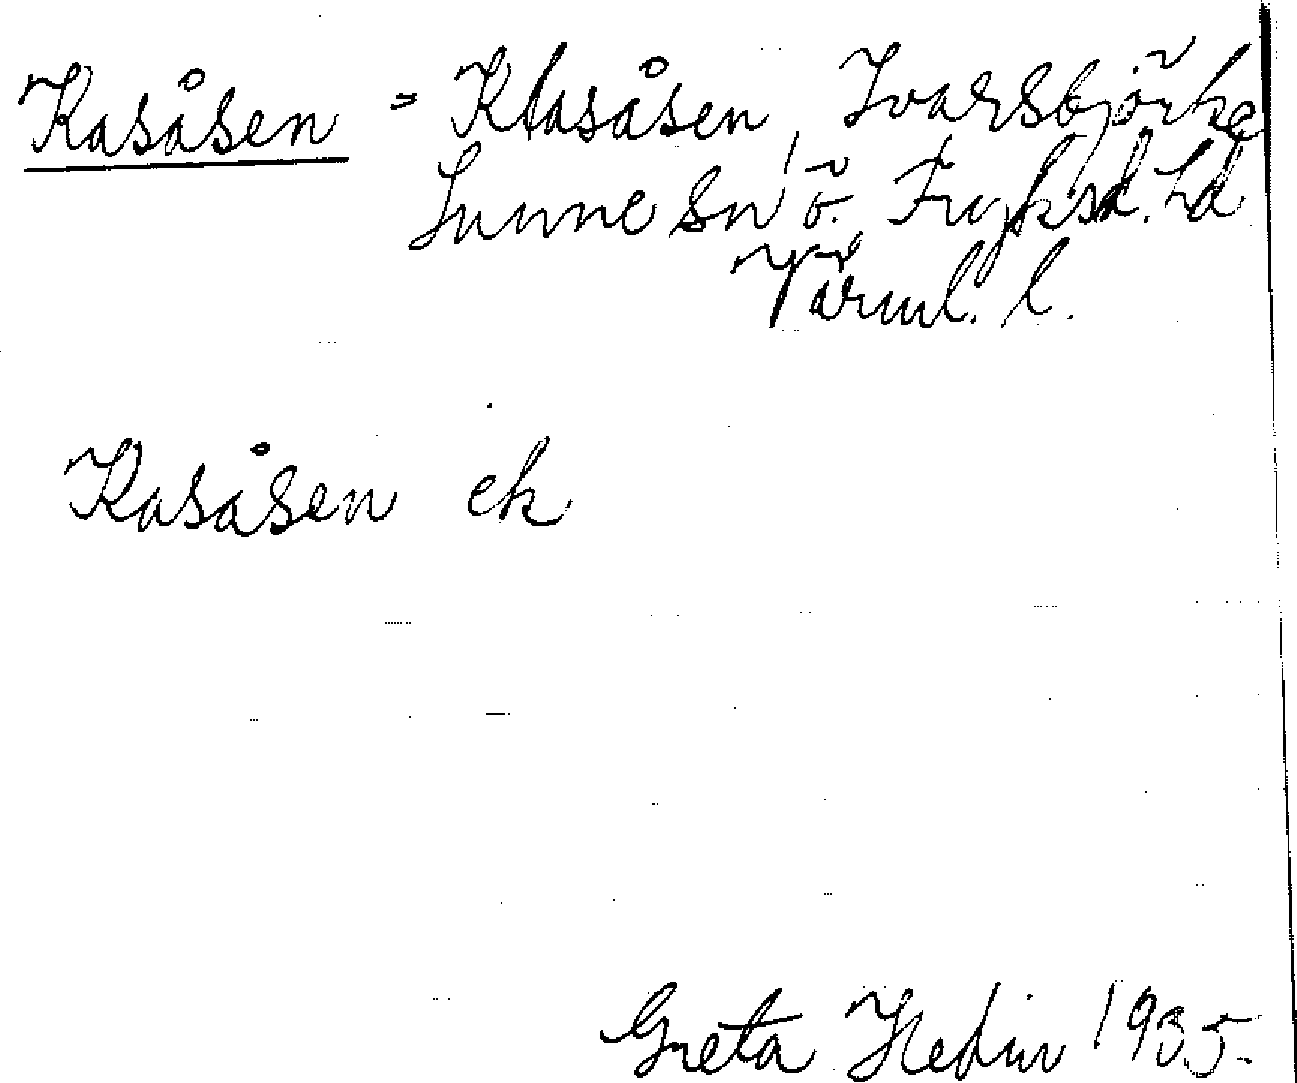 Kasåsen = Klasåsen, Ivarsbjörke
Sunne sn ö. Fryksd. hd
Värml. l.
Kasåsen ek
Greta Hedin 1935.